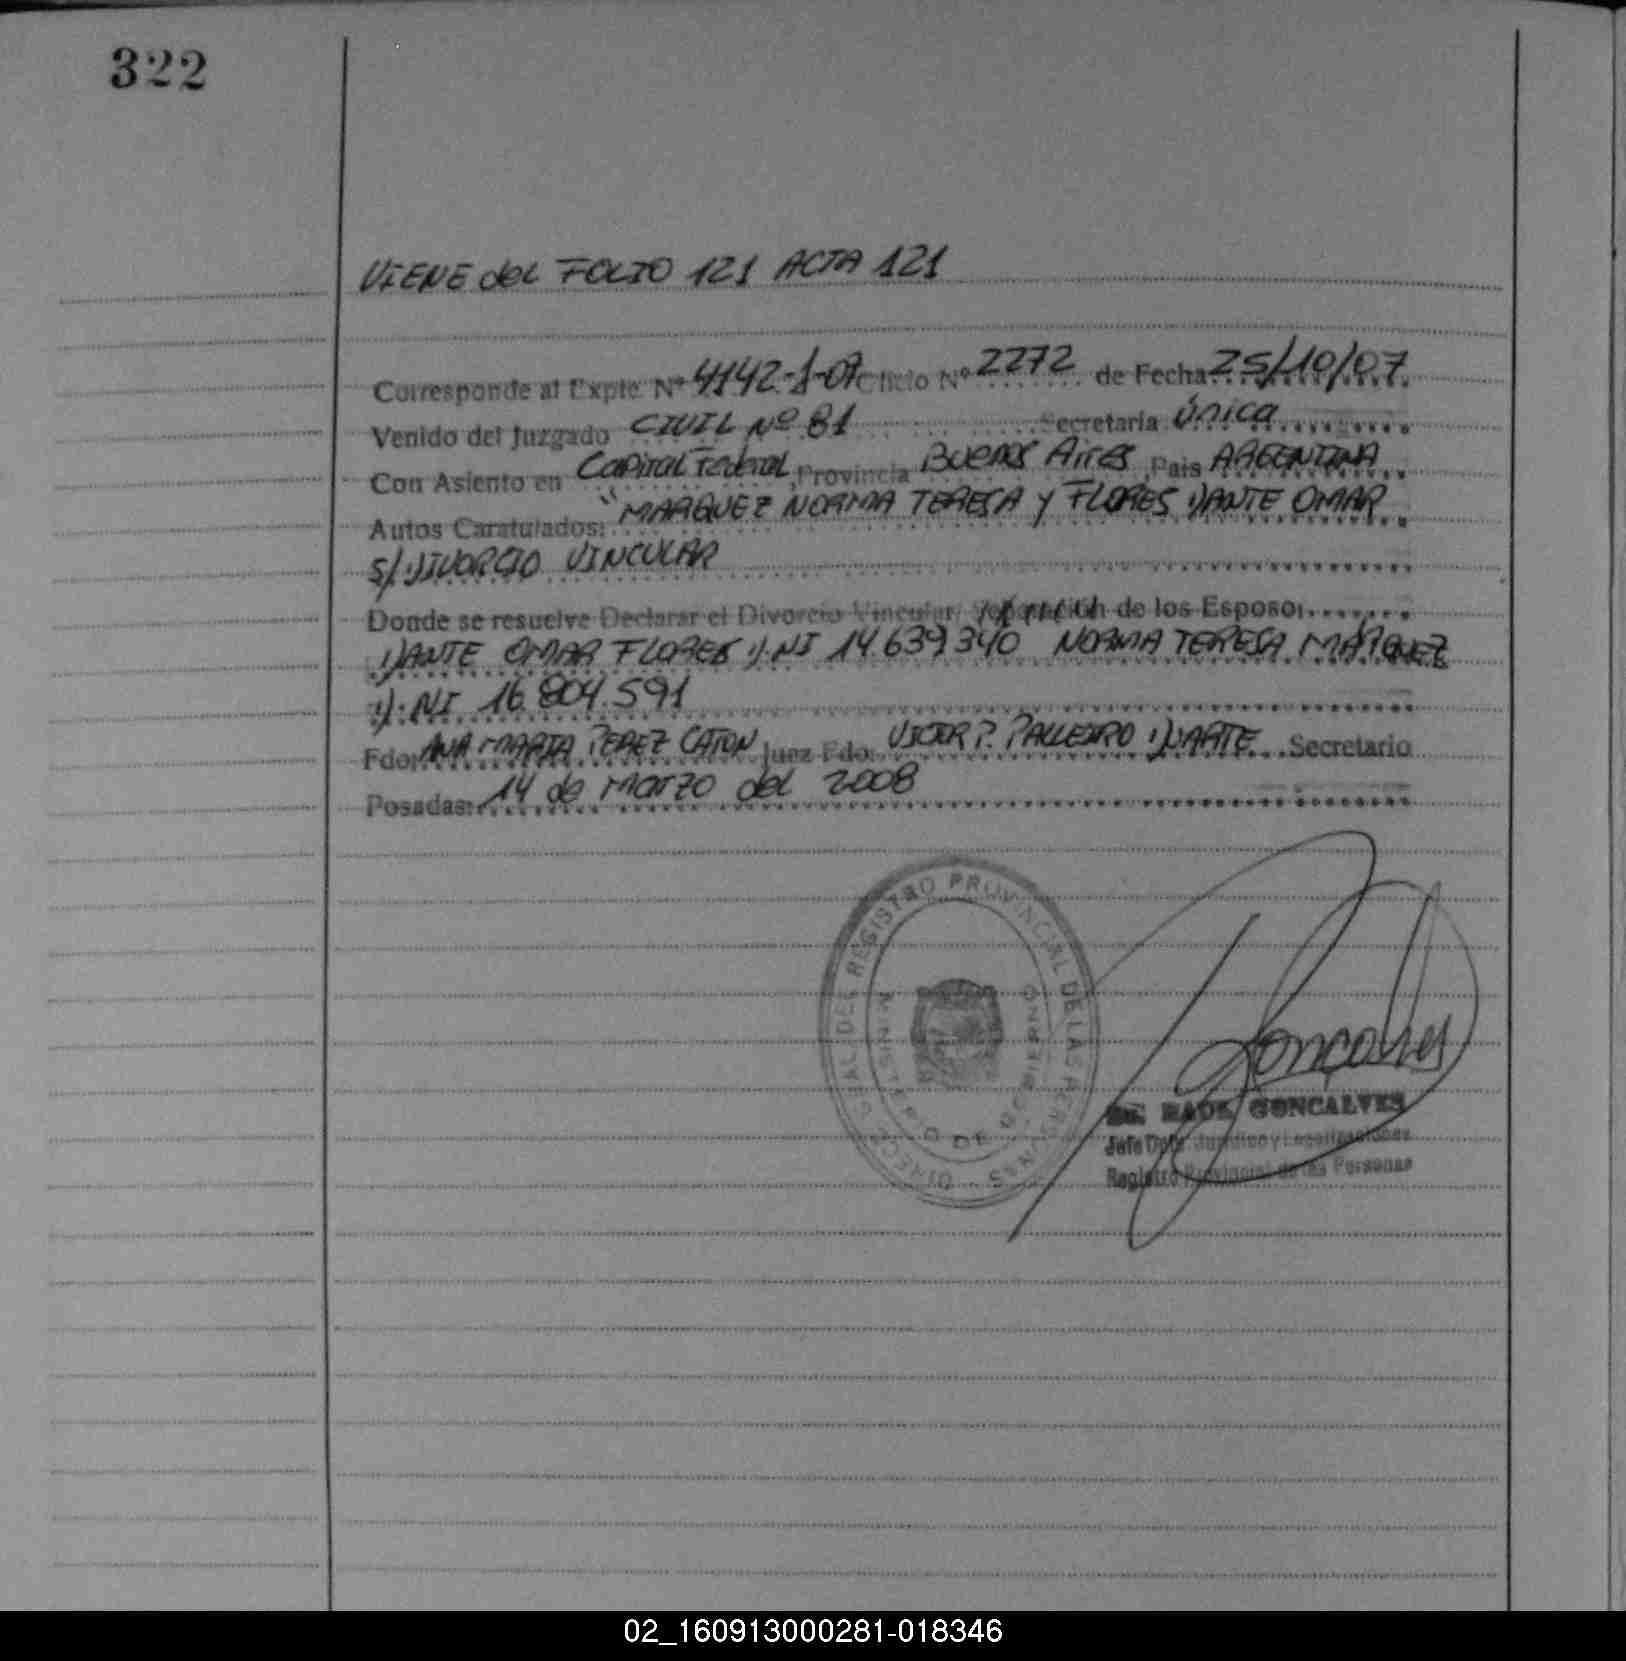 322
VIENE del FOLIO 121 ACTA 121
Corresponde al Expte. Nº 4142-1-07 Oficio Nº 2272 de Fecha 25/10/07
Venido del Juzgado CIVIL Nº 81 Secretaria única
Con Asiento en Capital Federal, Provincia Buenos Aires, Pais ARGENTINA
Autos Caratulados: "MARQUEZ NORMA TERESA Y FLORES DANTE OMAR
S/ DIVORCIO VINCULAR
Donde se resuelve Declarar el Divorcio Vincular, de los Esposo:
DANTE OMAR FLORES D.NI 14.639.340 NORMA TERESA MARQUEZ
D.NI 16.804.591
Fdo: ANA MARIA PEREZ CATON Juez Fdo: VICTOR P. PALLEIRO DUARTE Secretario
Posadas: 14 de MARZO del 2008
REGISTRO PROVINCIAL DE LAS PERSONAS
DE GOBIERNO
Goncalves
Dr. RAUL GONCALVES
Jefe Dpto. Juridico y Legalizaciones
Registro Provincial de las Personas
02_160913000281-018346